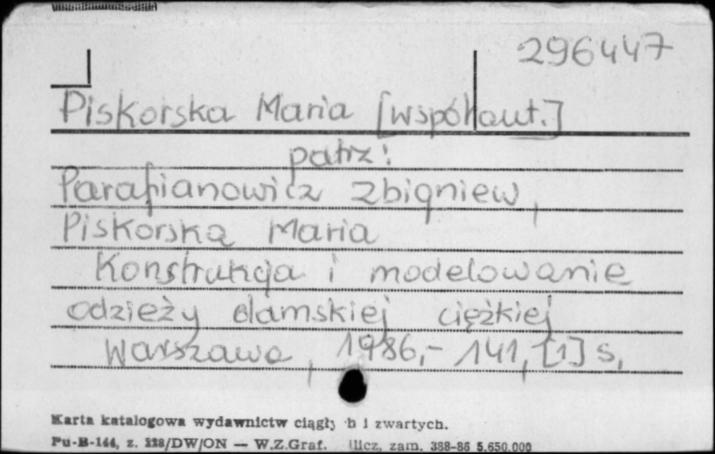 296447
Piskorska Maria [współaut.]
patrz:
Parafianowicz Zbigniew,
Piskorska Maria
Konstrukcja i modelowanie
odzieży damskiej ciężkiej
Warszawa, 1986,- 141, [1] s.
Karta katalogowa wydawnictw ciągły h i zwartych.
Pu-B-144, z. 228/DW/ON — W.Z.Graf. zam. 388-86 5.650.000